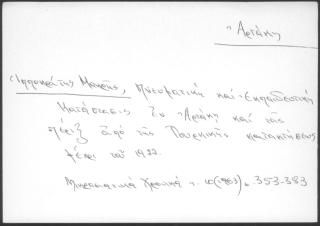 Ἀρτάκη
Ἱπποκράτης Μακρῆς, Πνευματική καί Ἐκπαιδευτική
Κατάστασις ἐν Ἀρτάκῃ καί τῆς
πέριξ ἀπό τῆς Τουρκικῆς κατακτήσεως
μέχρι τοῦ 1922.
Μικρασιατικά Χρονικά τ. 10(1963), 353-383